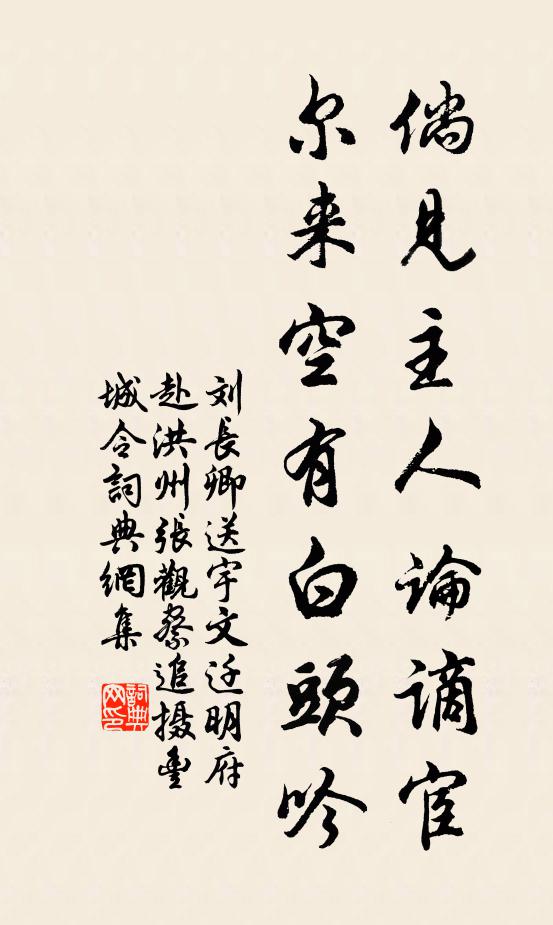 倘見主人論謫宦
尔来空有白頭吟
刘長卿送宇文迁明府
赴洪州張觀察追摄豊
城令詞典網集
詞典網印